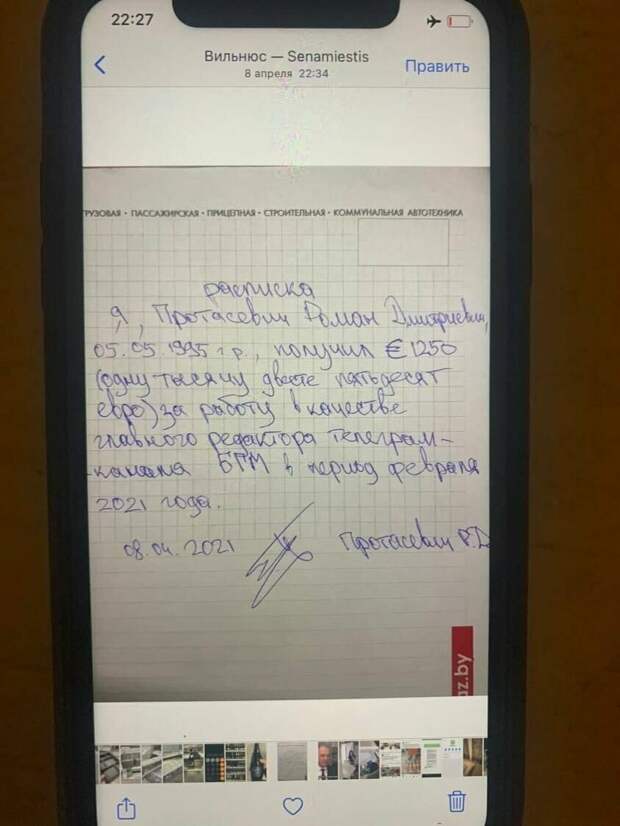 22:27
Вильнюс — Senamiestis
8 апреля 22:34
Править
РУЗОВАЯ • ПАССАЖИРСКАЯ • ПРИЦЕПНАЯ • СТРОИТЕЛЬНАЯ • КОММУНАЛЬНАЯ АВТОТЕХНИКА
расписка
Я, Протасевич Роман Дмитриевич,
05.05.1995 г.р., получил €1250
(одну тысячу двести пятьдесят
евро) за работу в качестве
главного редактора телеграм-
-канала БГМ в период февраля
2021 года.
08.04.2021 Протасевич Р.Д
az.by